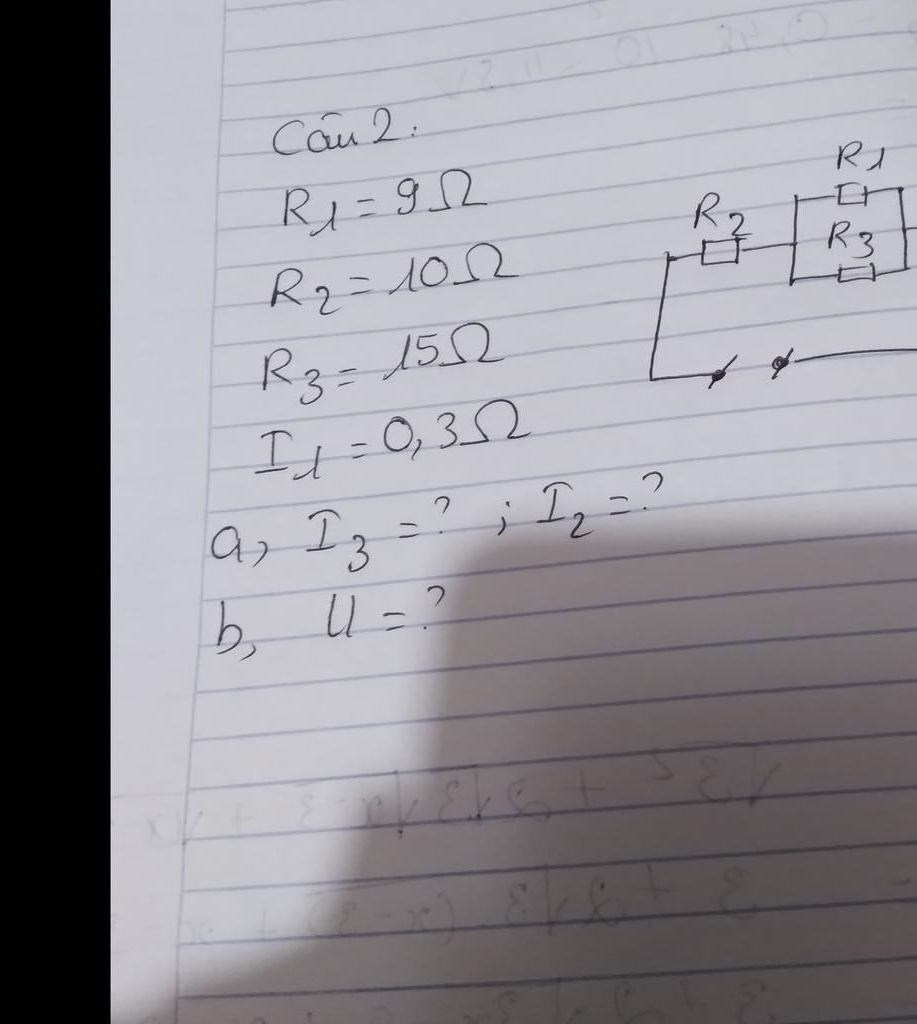 Câu 2.
R1 = 9Ω
R2 = 10Ω
R3 = 15Ω
I1 = 0,3Ω
a, I3 = ? ; I2 = ?
b, U = ?
R1
R2
R3